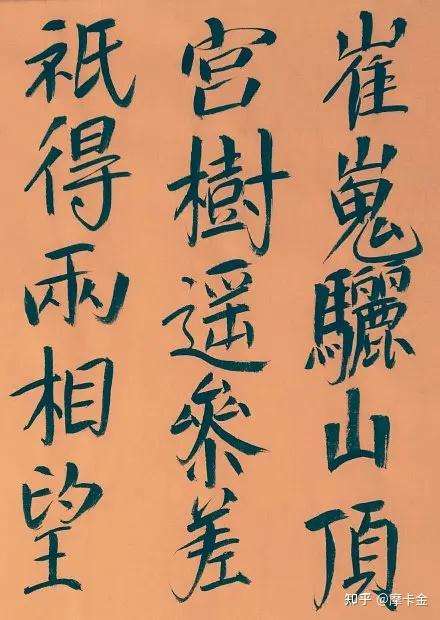 崔嵬驪山頂
宮樹遥參差
祇得兩相望
知乎 @摩卡金